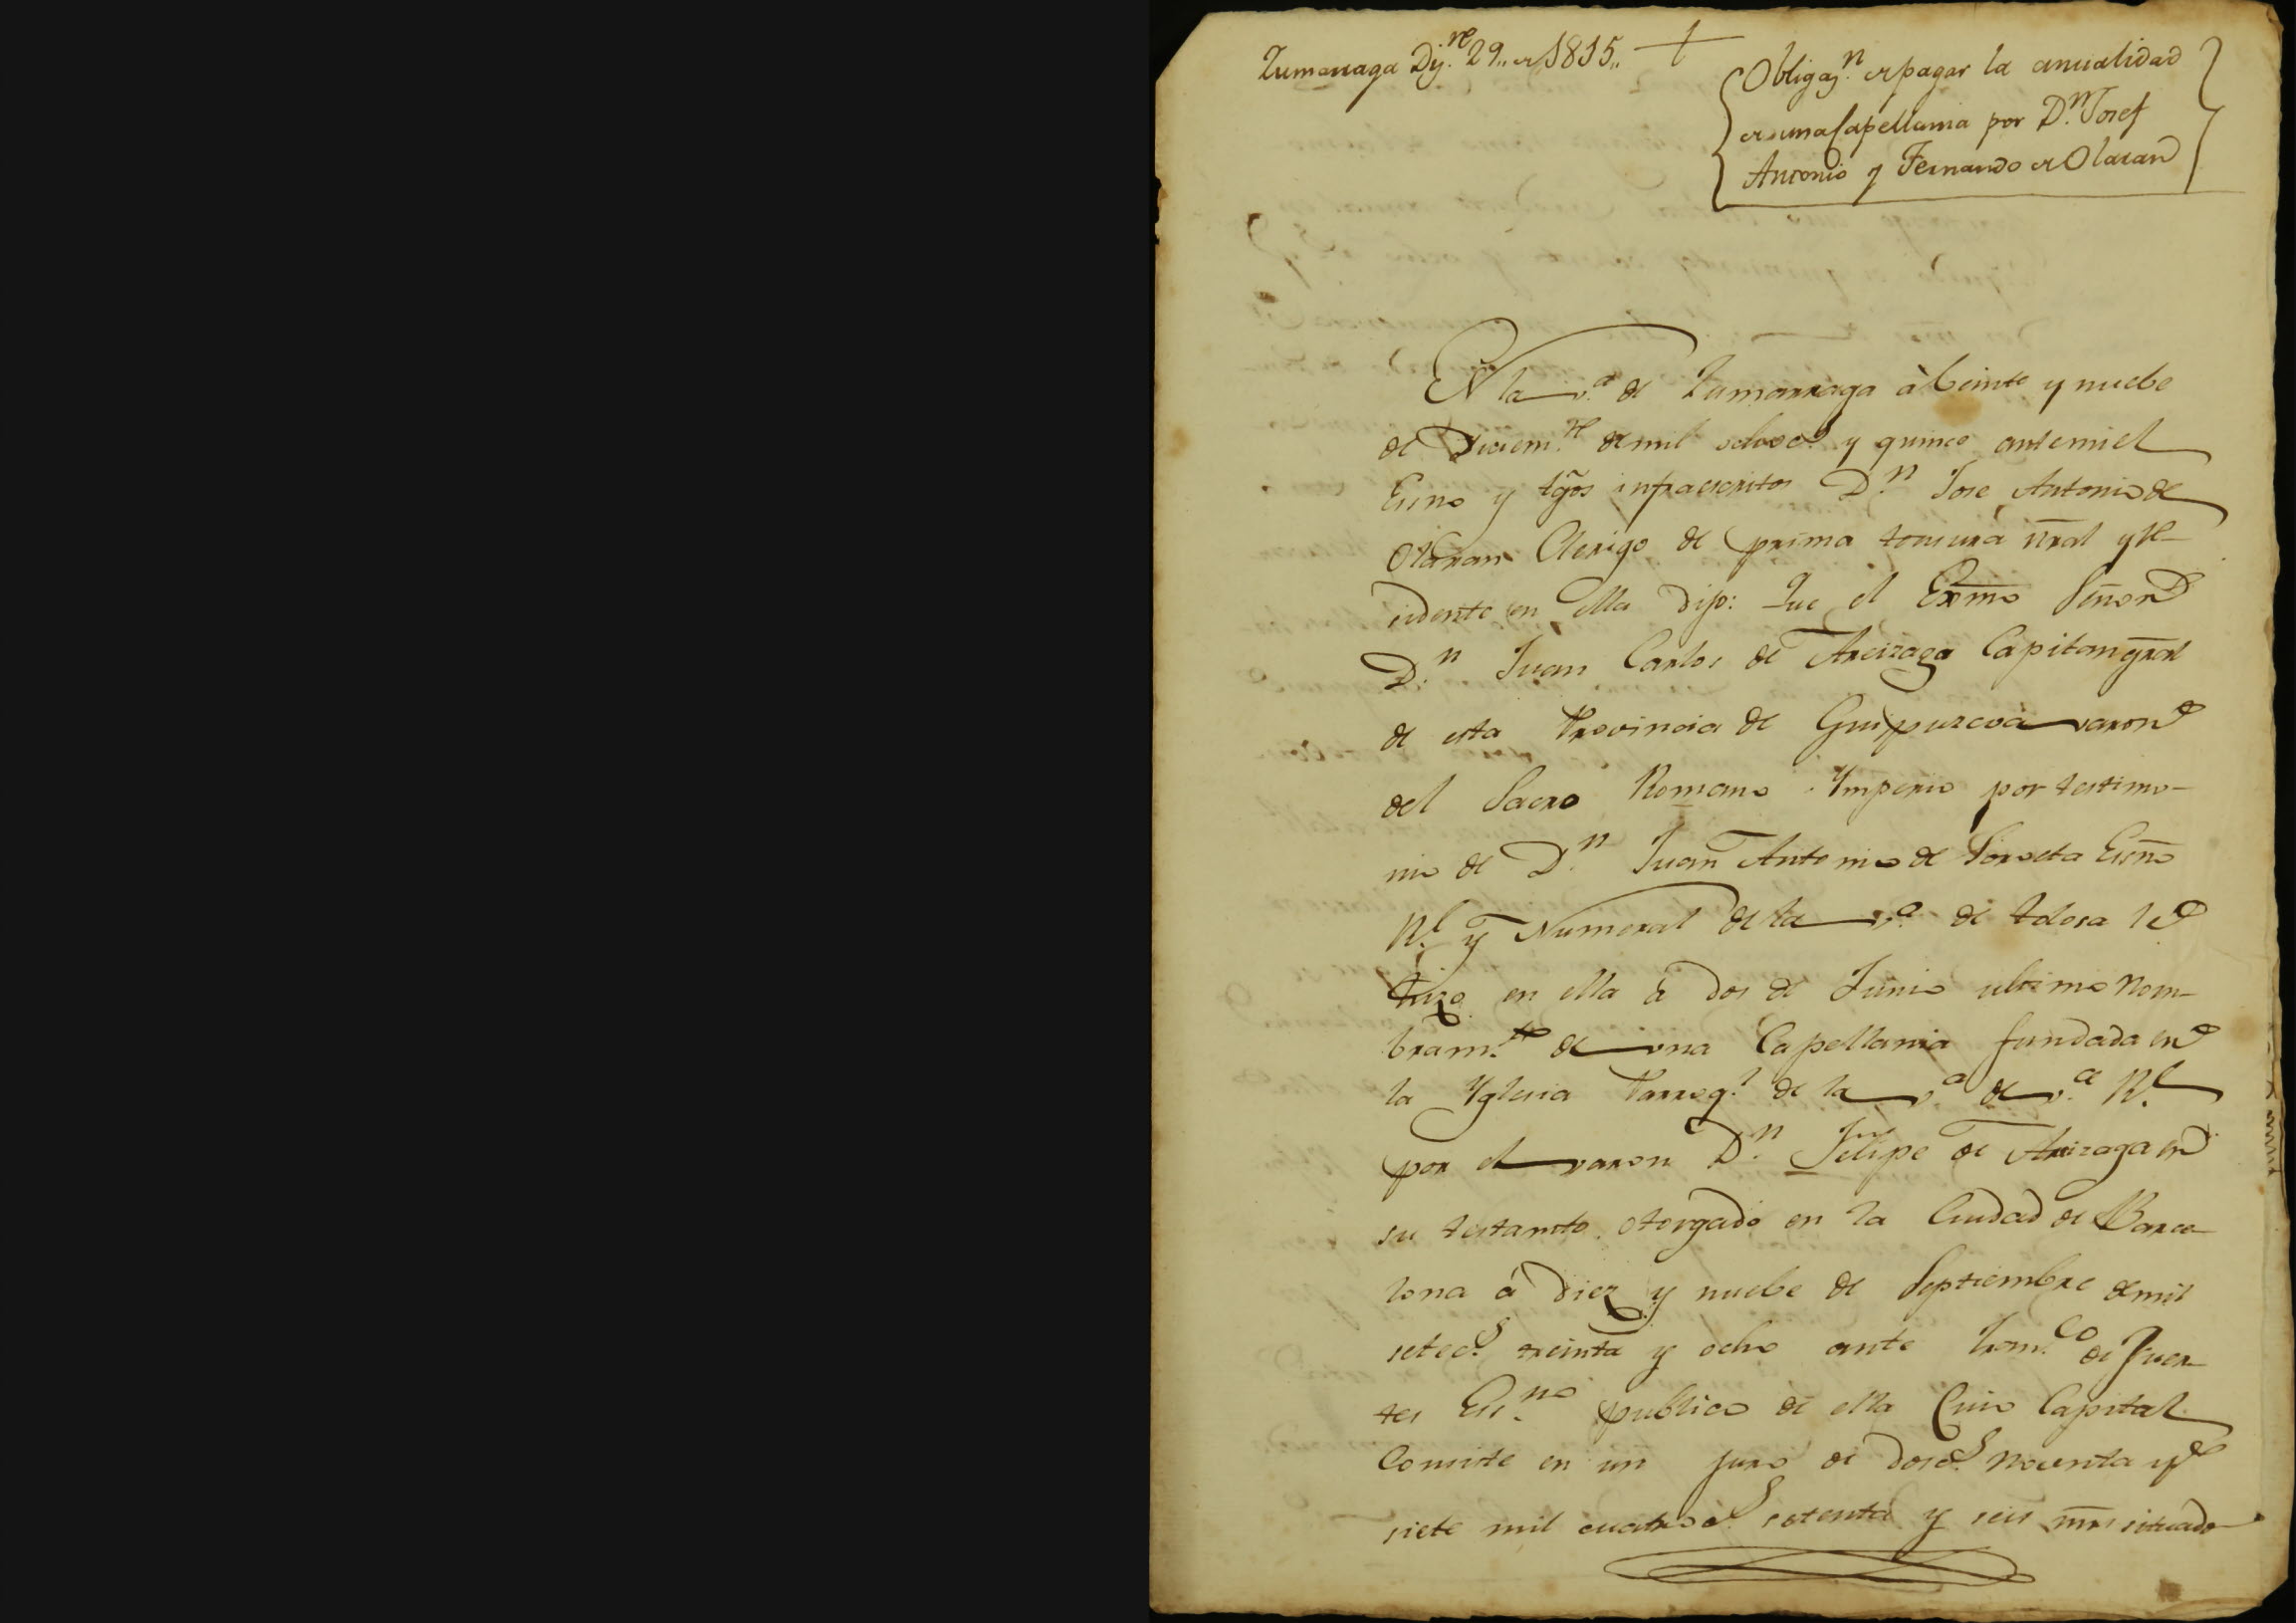 Zumarraga Dij.re 29,, de 1815,,
Obligaz.n de pagar la anualidad
de una Capellania por D.n Josef
Antonio y Fernando de Olaran
En la v.a de Zumarraga à beinte y nuebe
de Diciem.re de mil ochoc.s y quince ante mi el
Esno y tgos infraescritos D.n Jose Antonio de
Olaran Clerigo de prima tonsura nral y re-
sidente en ella dijo: Que el Exmo Señor
D.n Juan Carlos de Areizaga Capitan gral
de esta Provincia de Guipuzcoa varon
del Sacro Romano Ymperio por testimo-
nio de D.n Juan Antonio de Lorseta Esño
R.l y Numeral de la v.a de Tolosa le
hizo en ella à dos de Junio ultimo nom-
bram.to de una Capellania fundada en
la Yglesia Parroq.l de la v.a de v.a R.l
por el varon D.n Felipe de Areizaga en
su testamto otorgado en la Ciudad de Barce-
lona à diez y nuebe de Septiembre de mil
setec.s treinta y ocho ante Fran.co de Fuen-
tes Es.no publico de ella Cuio Capital
Consiste en un juro de dosc.s nobenta y
siete mil cuatroc.s setenta y seis mrs situado